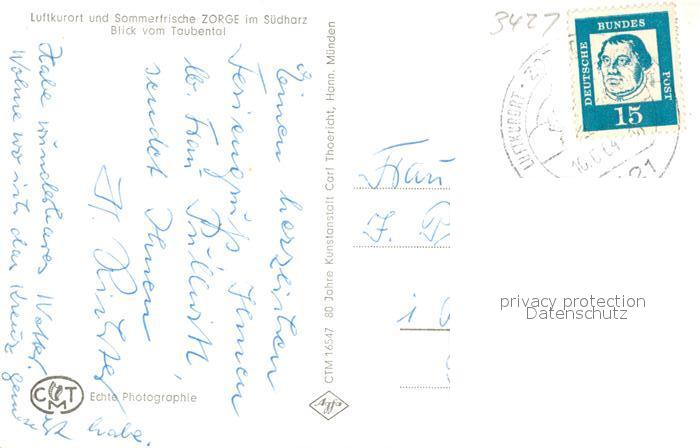 Luftkurort und Sommerfrische ZORGE im Südharz
Blick vom Taubental
3427
DEUTSCHE BUNDES POST
15
LUFTKURORT · ZO
16.6.64
21
Einen herzlichen
Feriengruß Ihnen
lb. Frau
sendet Ihnen
H. Richter
Habe wunderbares Wetter.
Wohne wo ich das Kreuz gemacht
habe.
CTM 16547 80 Jahre Kunstanstalt Carl Thoericht, Hann. Münden
Frau
J.
i
privacy protection
Datenschutz
CTM
Echte Photographie
Agfa